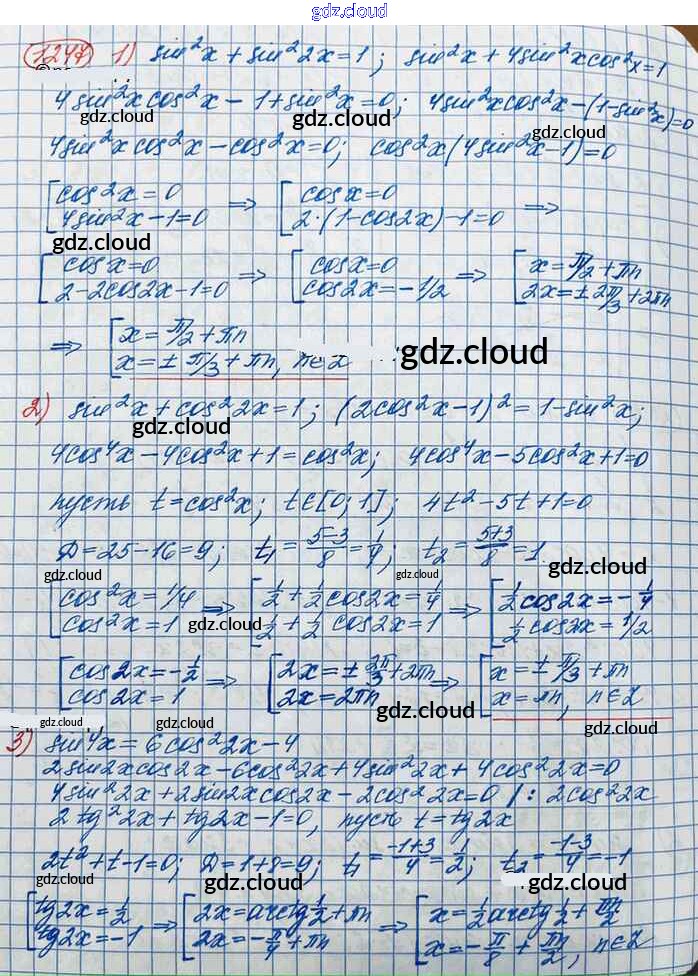 gdz.cloud
1247 1) sin²x + sin²2x = 1; sin²x + 4sin²xcos²x = 1
4sin²xcos²x - 1 + sin²x = 0; 4sin²xcos²x - (1 - sin²x) = 0
gdz.cloud gdz.cloud
4sin²xcos²x - cos²x = 0; cos²x(4sin²x - 1) = 0
[cos²x = 0 ⇒ [cosx = 0 ⇒
[4sin²x - 1 = 0 [2·(1 - cos2x) - 1 = 0
gdz.cloud
[cosx = 0 ⇒ [cosx = 0 ⇒ [x = π/2 + πn
[2 - 2cos2x - 1 = 0 [cos2x = -1/2 [2x = ± 2π/3 + 2πn
⇒ [x = π/2 + πn
[x = ± π/3 + πn, n∈Z
gdz.cloud
2) sin²x + cos²2x = 1; (2cos²x - 1)² = 1 - sin²x;
gdz.cloud
4cos⁴x - 4cos²x + 1 = cos²x; 4cos⁴x - 5cos²x + 1 = 0
пусть t = cos²x; t∈[0; 1]; 4t² - 5t + 1 = 0
Д = 25 - 16 = 9; t₁ = (5-3)/8 = 1/4; t₂ = (5+3)/8 = 1
gdz.cloud gdz.cloud gdz.cloud
[cos²x = 1/4 ⇒ [1/2 + 1/2 cos2x = 1/4 ⇒ [1/2 cos2x = -1/4
[cos²x = 1 [1/2 + 1/2 cos2x = 1 [1/2 cos2x = 1/2
gdz.cloud gdz.cloud
[cos2x = -1/2 ⇒ [2x = ± 2π/3 + 2πn ⇒ [x = ± π/3 + πn
[cos2x = 1 [2x = 2πn [x = πn, n∈Z
gdz.cloud gdz.cloud gdz.cloud
3) sin4x = 6cos²2x - 4
2sin2xcos2x - 6cos²2x + 4sin²2x + 4cos²2x = 0
4sin²2x + 2sin2xcos2x - 2cos²2x = 0 /: 2cos²2x
2tg²2x + tg2x - 1 = 0, пусть t = tg2x
2t² + t - 1 = 0; Д = 1 + 8 = 9; t₁ = (-1+3)/4 = 1/2; t₂ = (-1-3)/4 = -1
gdz.cloud gdz.cloud
[tg2x = 1/2 ⇒ [2x = arctg 1/2 + πn ⇒ [x = 1/2 arctg 1/2 + πn/2
[tg2x = -1 [2x = -π/4 + πn [x = -π/8 + πn/2, n∈Z
gdz.cloud gdz.cloud